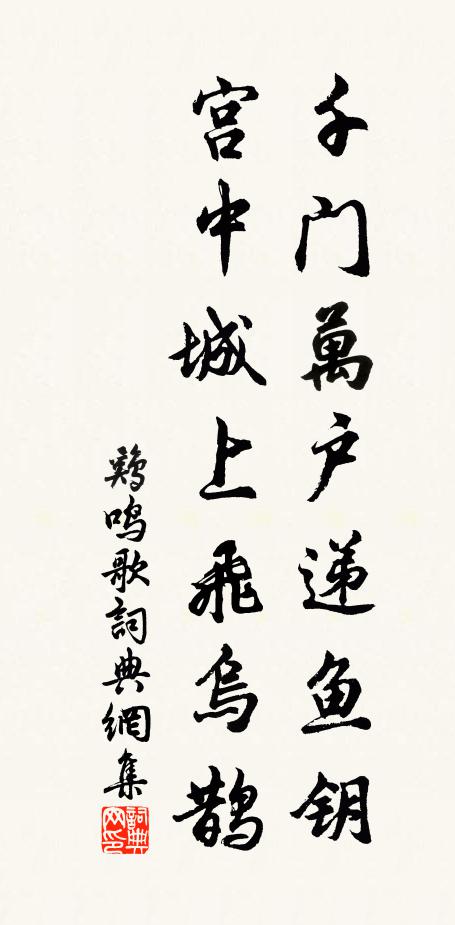 千门萬户递鱼钥
宫中城上飛烏鹊
鶏鳴歌詞典網集
詞典网印